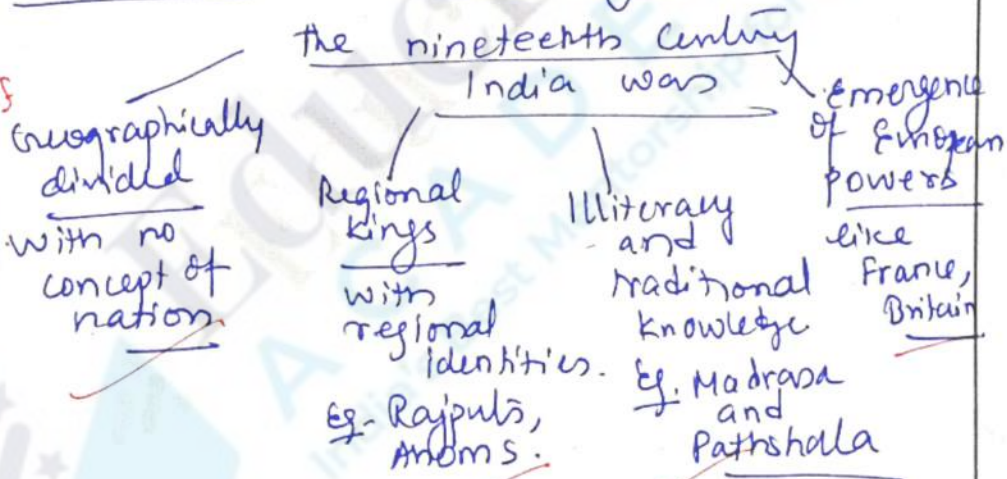 the nineteenth Century
India was
Geographically
divided
with no
concept of
nation
Regional
kings
with
regional
identities.
Eg- Rajputs,
Ahoms.
Illiteracy
and
traditional
knowledge
Eg. Madrasa
and
Pathshala
Emergence
of European
powers
like
France,
Britain